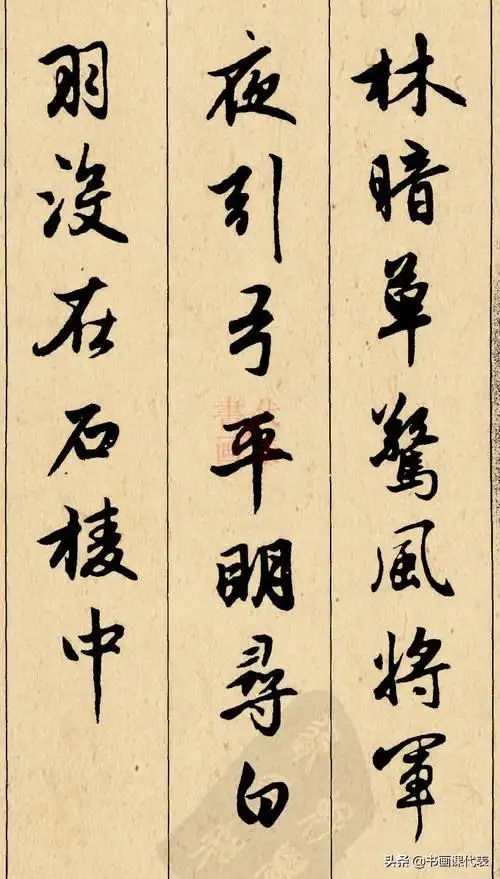 林暗草驚風將軍
夜引弓平明尋白
羽沒在石稜中
头条 @书画课代表